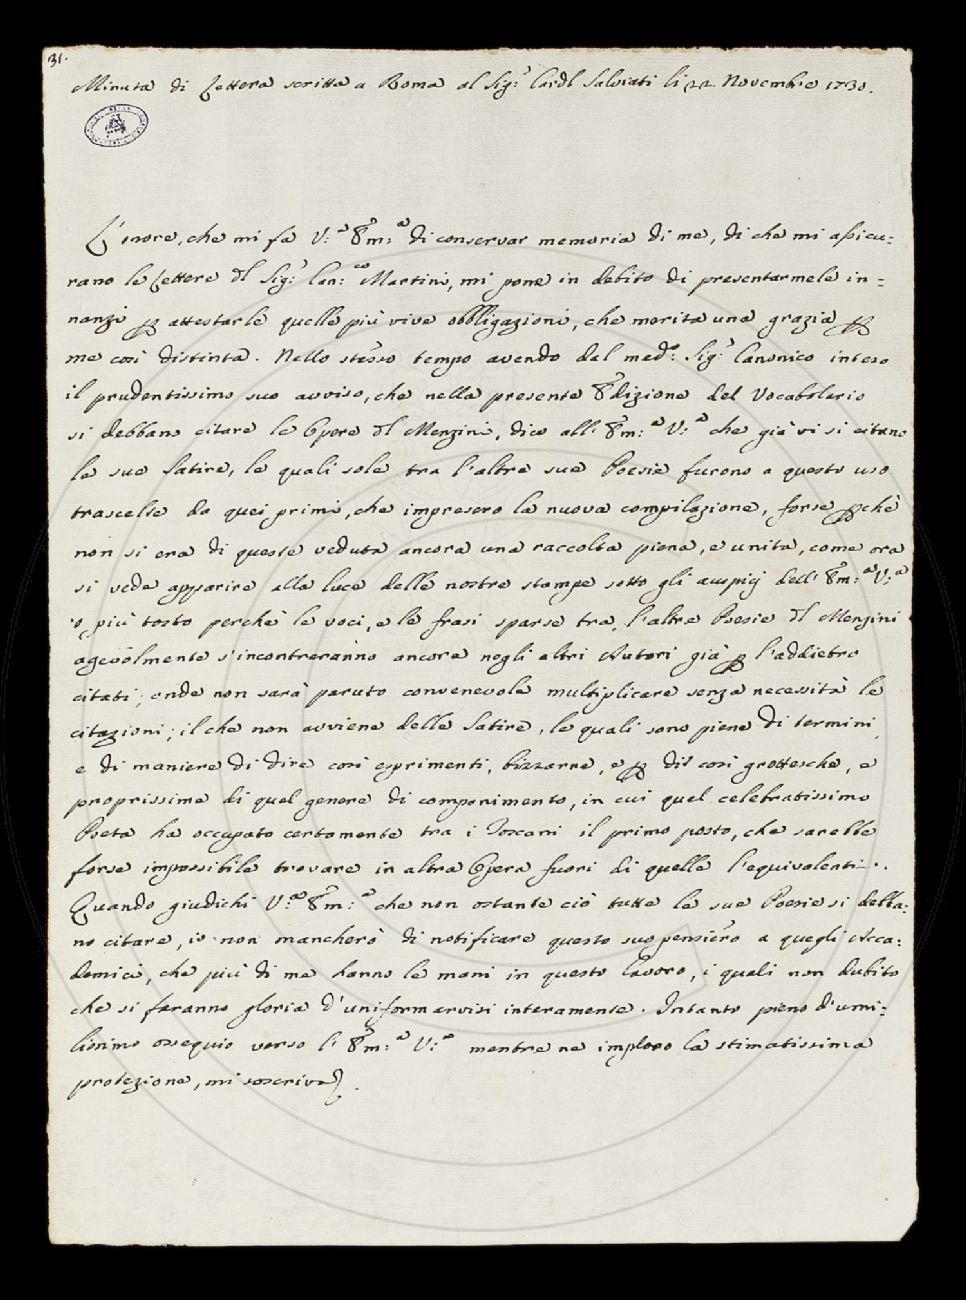 31.
Minuta di Lettera scritta a Roma al Sig.r Cardl Salviati li 22 Novembre 1730.
L'onore, che mi fa V.a Em.a di conservar memoria di me, di che mi assicu=
rano le Lettere dl Sig.r Can.co Martini, mi pone in debito di presentarmele in=
nanzi p attestarle quelle più vive obbligazioni, che merita una grazia p
me così distinta. Nello stesso tempo avendo dal med.o Sig.r Canonico inteso
il prudentissimo suo avviso, che nella presente Edizione del Vocabolario
si debbano citare le Opere dl Menzini, dico all' Em.a V.a che già vi si citano
le sue Satire, le quali sole tra l'altre sue Poesie furono a questo uso
trascelte da quei primi, che impresero la nuova compilazione, forse pchè
non si era di queste veduta ancora una raccolta piena, e unita, come ora
si vede apparire alla luce delle nostre stampe sotto gli auspicj dell' Em.a V.a
o più tosto perchè le voci, e le frasi sparse tra l'altre Poesie dl Menzini
agevolmente s'incontreranno ancora negli altri Autori già p l'addietro
citati; onde non sarà paruto convenevole multiplicare senza necessità le
citazioni; il che non avviene delle Satire, le quali sono piene di termini,
e di maniere di dire così esprimenti, bizzarre, e p dir così grottesche, e
proprissime di quel genere di componimento, in cui quel celebratissimo
Poeta ha occupato certamente tra i Toscani il primo posto, che sarebbe
forse impossibile trovare in altra Opera fuori di quelle l'equivalenti.
Quando giudichi V.a Em.a che non ostante ciò tutte le sue Poesie si debba=
no citare, io non mancherò di notificare questo suo pensiero a quegli Acca=
demici, che più di me hanno le mani in questo lavoro, i quali non dubito
che si faranno gloria d'uniformarvisi interamente. Intanto pieno d'umi=
lissimo ossequio verso l' Em.a V.a mentre ne imploro la stimatissima
protezione, mi soscrivo